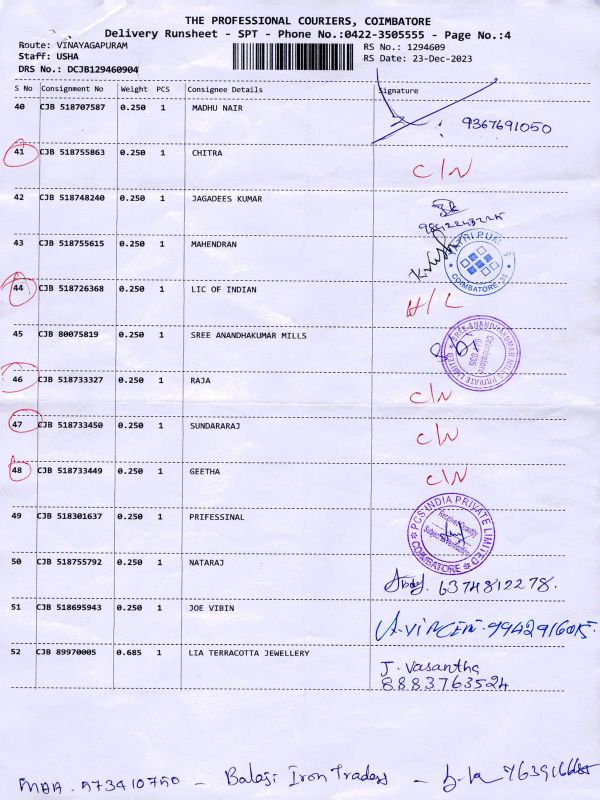 THE PROFESSIONAL COURIERS, COIMBATORE
Delivery Runsheet - SPT - Phone No.:0422-3505555 - Page No.:4
Route: VINAYAGAPURAM RS No.: 1294609
Staff: USHA RS Date: 23-Dec-2023
DRS No.: DCJB129460904
S No Consignment No Weight PCS Consignee Details Signature
40 CJB 518707587 0.250 1 MADHU NAIR 9367691050
41 CJB 518755863 0.250 1 CHITRA C/N
42 CJB 518748240 0.250 1 JAGADEES KUMAR
43 CJB 518755615 0.250 1 MAHENDRAN
COIMBATORE
44 CJB 518726368 0.250 1 LIC OF INDIAN H/L
45 CJB 80075819 0.250 1 SREE ANANDHAKUMAR MILLS
SREE ANANDHAKUMAR MILLS PRIVATE LIMITED
Coimbatore
46 CJB 518733327 0.250 1 RAJA C/N
47 CJB 518733450 0.250 1 SUNDARARAJ C/N
48 CJB 518733449 0.250 1 GEETHA C/N
49 CJB 518301637 0.250 1 PRIFESSINAL
PCS INDIA PRIVATE LIMITED
COIMBATORE
50 CJB 518755792 0.250 1 NATARAJ 6374812278.
51 CJB 518695943 0.250 1 JOE VIBIN 9942916015.
52 CJB 89970005 0.685 1 LIA TERRACOTTA JEWELLERY J. Vasantha
8883763524
Balaji Iron Traders